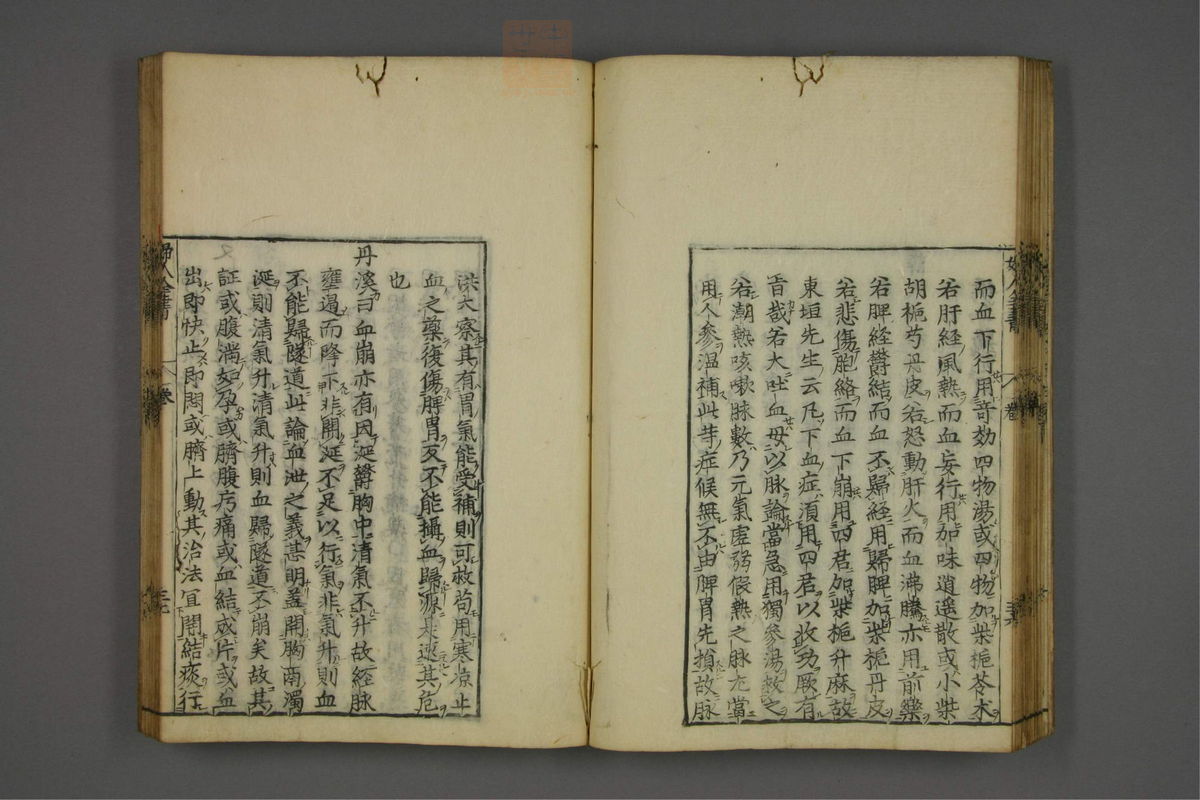 而血下行用奇効四物湯或四物加柴梔苓术
若肝経風熱而血妄行用加味逍遥散或小柴
胡梔芍丹皮若怒動肝火而血沸騰亦用前藥
若脾經欝結而血不歸経用歸脾加柴梔丹皮
若悲傷胞絡而血下崩用四君加柴梔升麻故
東垣先生云凡下血症湏用四君以收功厥有
㫖哉若大吐血毋以脉論當急用獨參湯救之
若潮熱咳嗽脉數乃元氣虛弱假熱之脉尤當
用人參温補此等症候無不由脾胃先損故脉
洪大察其有胃氣能受補則可救苟用寒凉止
血之藥復傷脾胃反不能攝血歸源是速其危
也
丹溪曰血崩亦有因涎欝胸中清氣不升故経脉
壅遏而降下非開涎不足以行氣非氣升則血
不能歸隧道此論血泄之義甚明蓋開胸南濁
涎則清氣升清氣升則血歸隧道不崩矣故其
証或腹満如孕或臍腹㽲痛或血結成片或血
出即快止即悶或臍上動其治法宜開結痰行
婦人全書
卷
三七